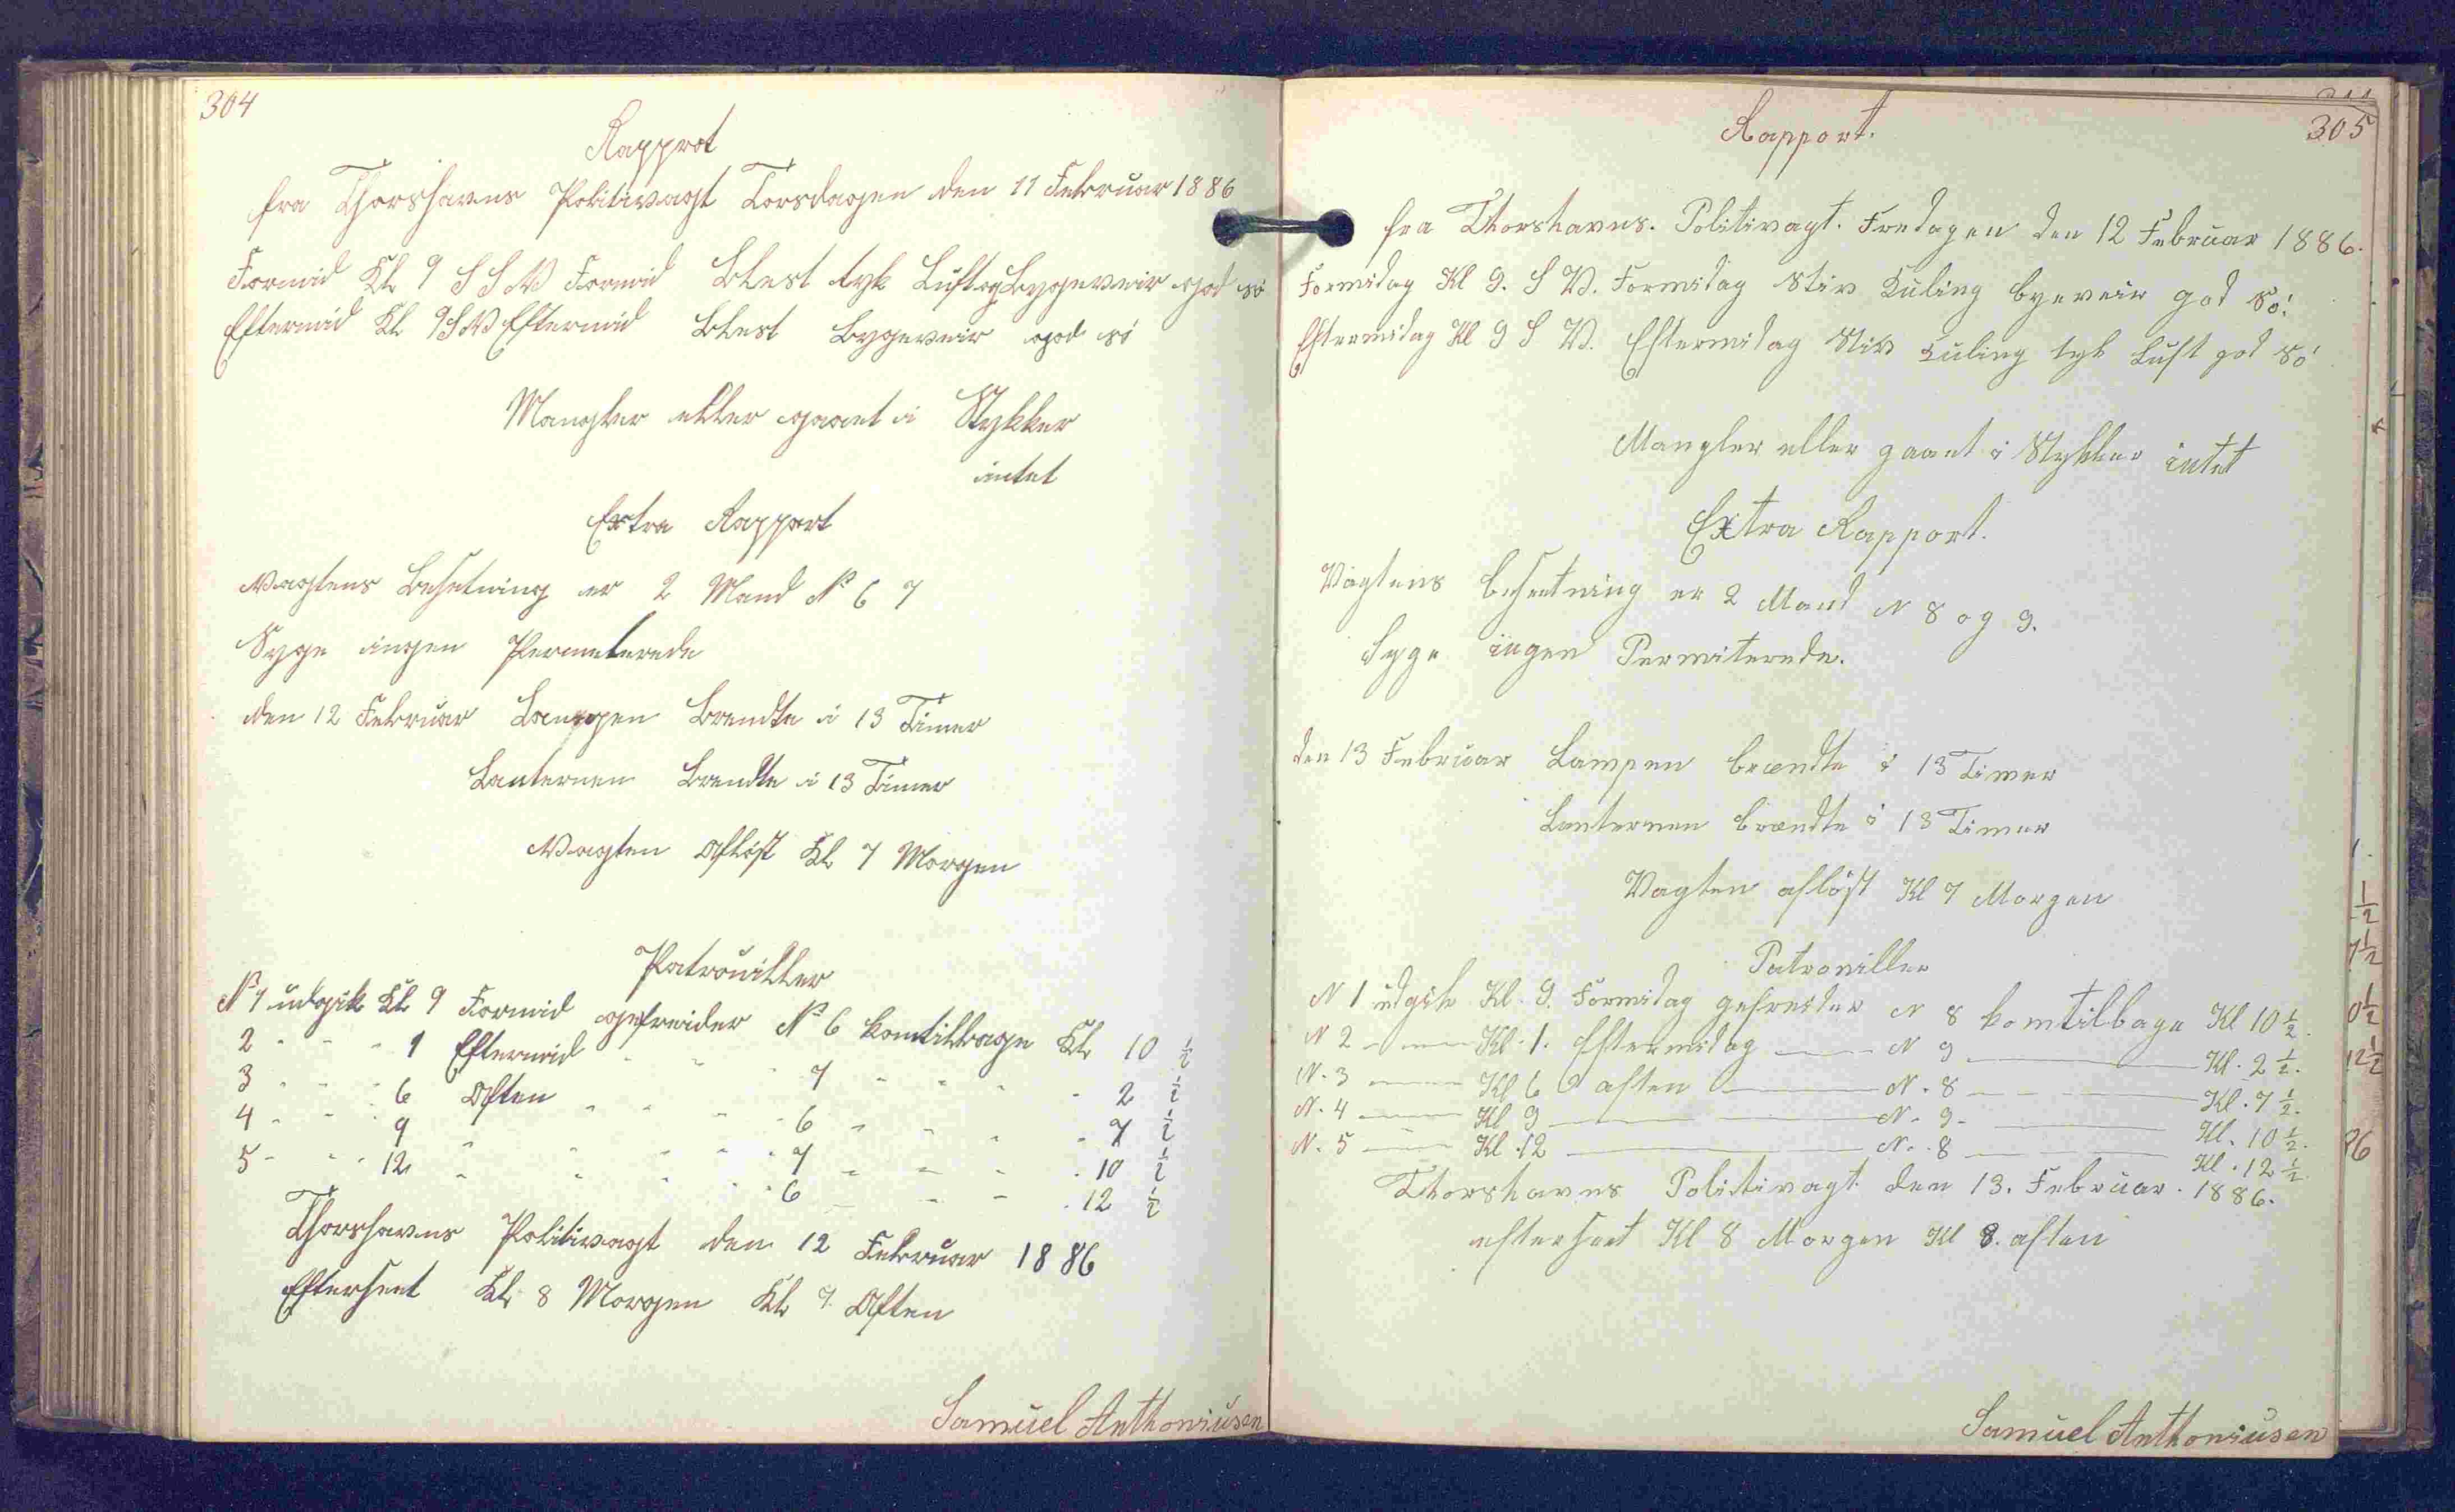 304
Rapprot
fra Thorshavns Politivagt Torsdagen den 11 Februar 1886
Formid Kl 9 S S V Formid Blest tyk Luft og Bygeveir god sö
Eftermid Kl 9 S V Eftermid Blest Bygeveir god sö
Mangler eller gaaet i Stykker
intet
Extra Rapport
Vagtens Besetning er 2 Mand No 6 7
Syge ingen Permeterede
den 12 Februar Lampen Brendte i 13 Timer
Lanternen Brendte i 13 Timer
Vagten Aflöst Kl 7 Morgen
Patrouiller
No 1 udgik Kl 9 Formid gefreider No 6 komtilbage Kl 10 1/2
2 - - - 1 Eftermid - - - 7 - - - - 2 1/2
3 - - - 6 Aften - - - - 6 - - - - 7 1/2
4 - - - 9 - - - - 7 - - - - 10 1/2
5 - - - 12 - - - - 6 - - - - 12 1/2
Thorshavns Politivagt den 12 Februar 1886
Efterseet Kl 8 Morgen Kl 7 Aften
Samuel Anthoniusen
305
Rapport.
fra Thorshavns. Politivagt. Fredagen den 12 Februar 1886.
Formidag Kl 9. S V. Formidag Stiv Kuling byeveir god Sö.
Eftermidag Kl 9 S V. Eftermidag Stiv Kuling tyk Luft god Sö
Mangler eller gaaet i Stykker intet
Extra Rapport.
Vagtens besætning er 2 Mand N 8 og 9.
Syge ingen Permiterede.
den 13 Februar Lampen brændte i 13 Timer
Lanternen brændte i 13 Timer
Vagten aflöst Kl 7 Morgen
Patrouiller
N 1 udgik Kl. 9. Formidag gefreider N 8 komtilbage Kl 10 1/2.
N 2 — Kl. 1. Eftermidag — N 9 — Kl. 2 1/2.
N. 3 — Kl 6 aften — N. 8 — Kl. 7 1/2.
N. 4 — Kl 9 — N. 9. — Kl. 10 1/2.
N. 5 — Kl. 12 — N. 8 — Kl. 12 1/2.
Thorshavns Politivagt den 13. Februar. 1886.
efterseet Kl 8 Morgen Kl 8. aften
Samuel Anthoniusen